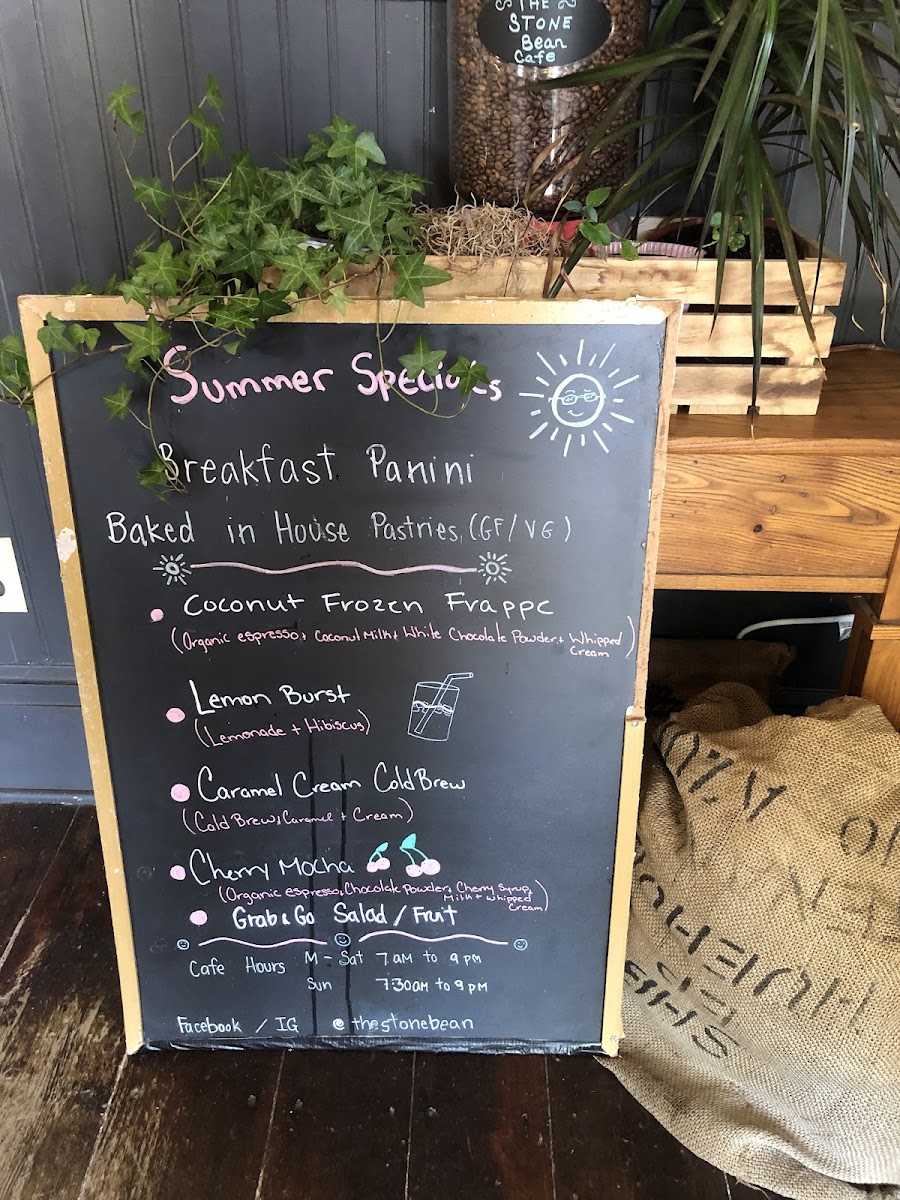 THE
STONE
Bean
Cafe
Summer Specials
Breakfast Panini
Baked in House Pastries (GF/VG)
Coconut Frozen Frappe
(Organic espresso + Coconut Milk + White Chocolate Powder + Whipped
Cream)
Lemon Burst
(Lemonade + Hibiscus)
Caramel Cream Cold Brew
(Cold Brew, Caramel + Cream)
Cherry Mocha
(Organic espresso, Chocolate powder, Cherry Syrup,
Milk + Whipped
Cream)
Grab & Go Salad / Fruit
Cafe Hours M - Sat 7AM to 9PM
Sun 7:30AM to 9PM
Facebook / IG @thestonebean